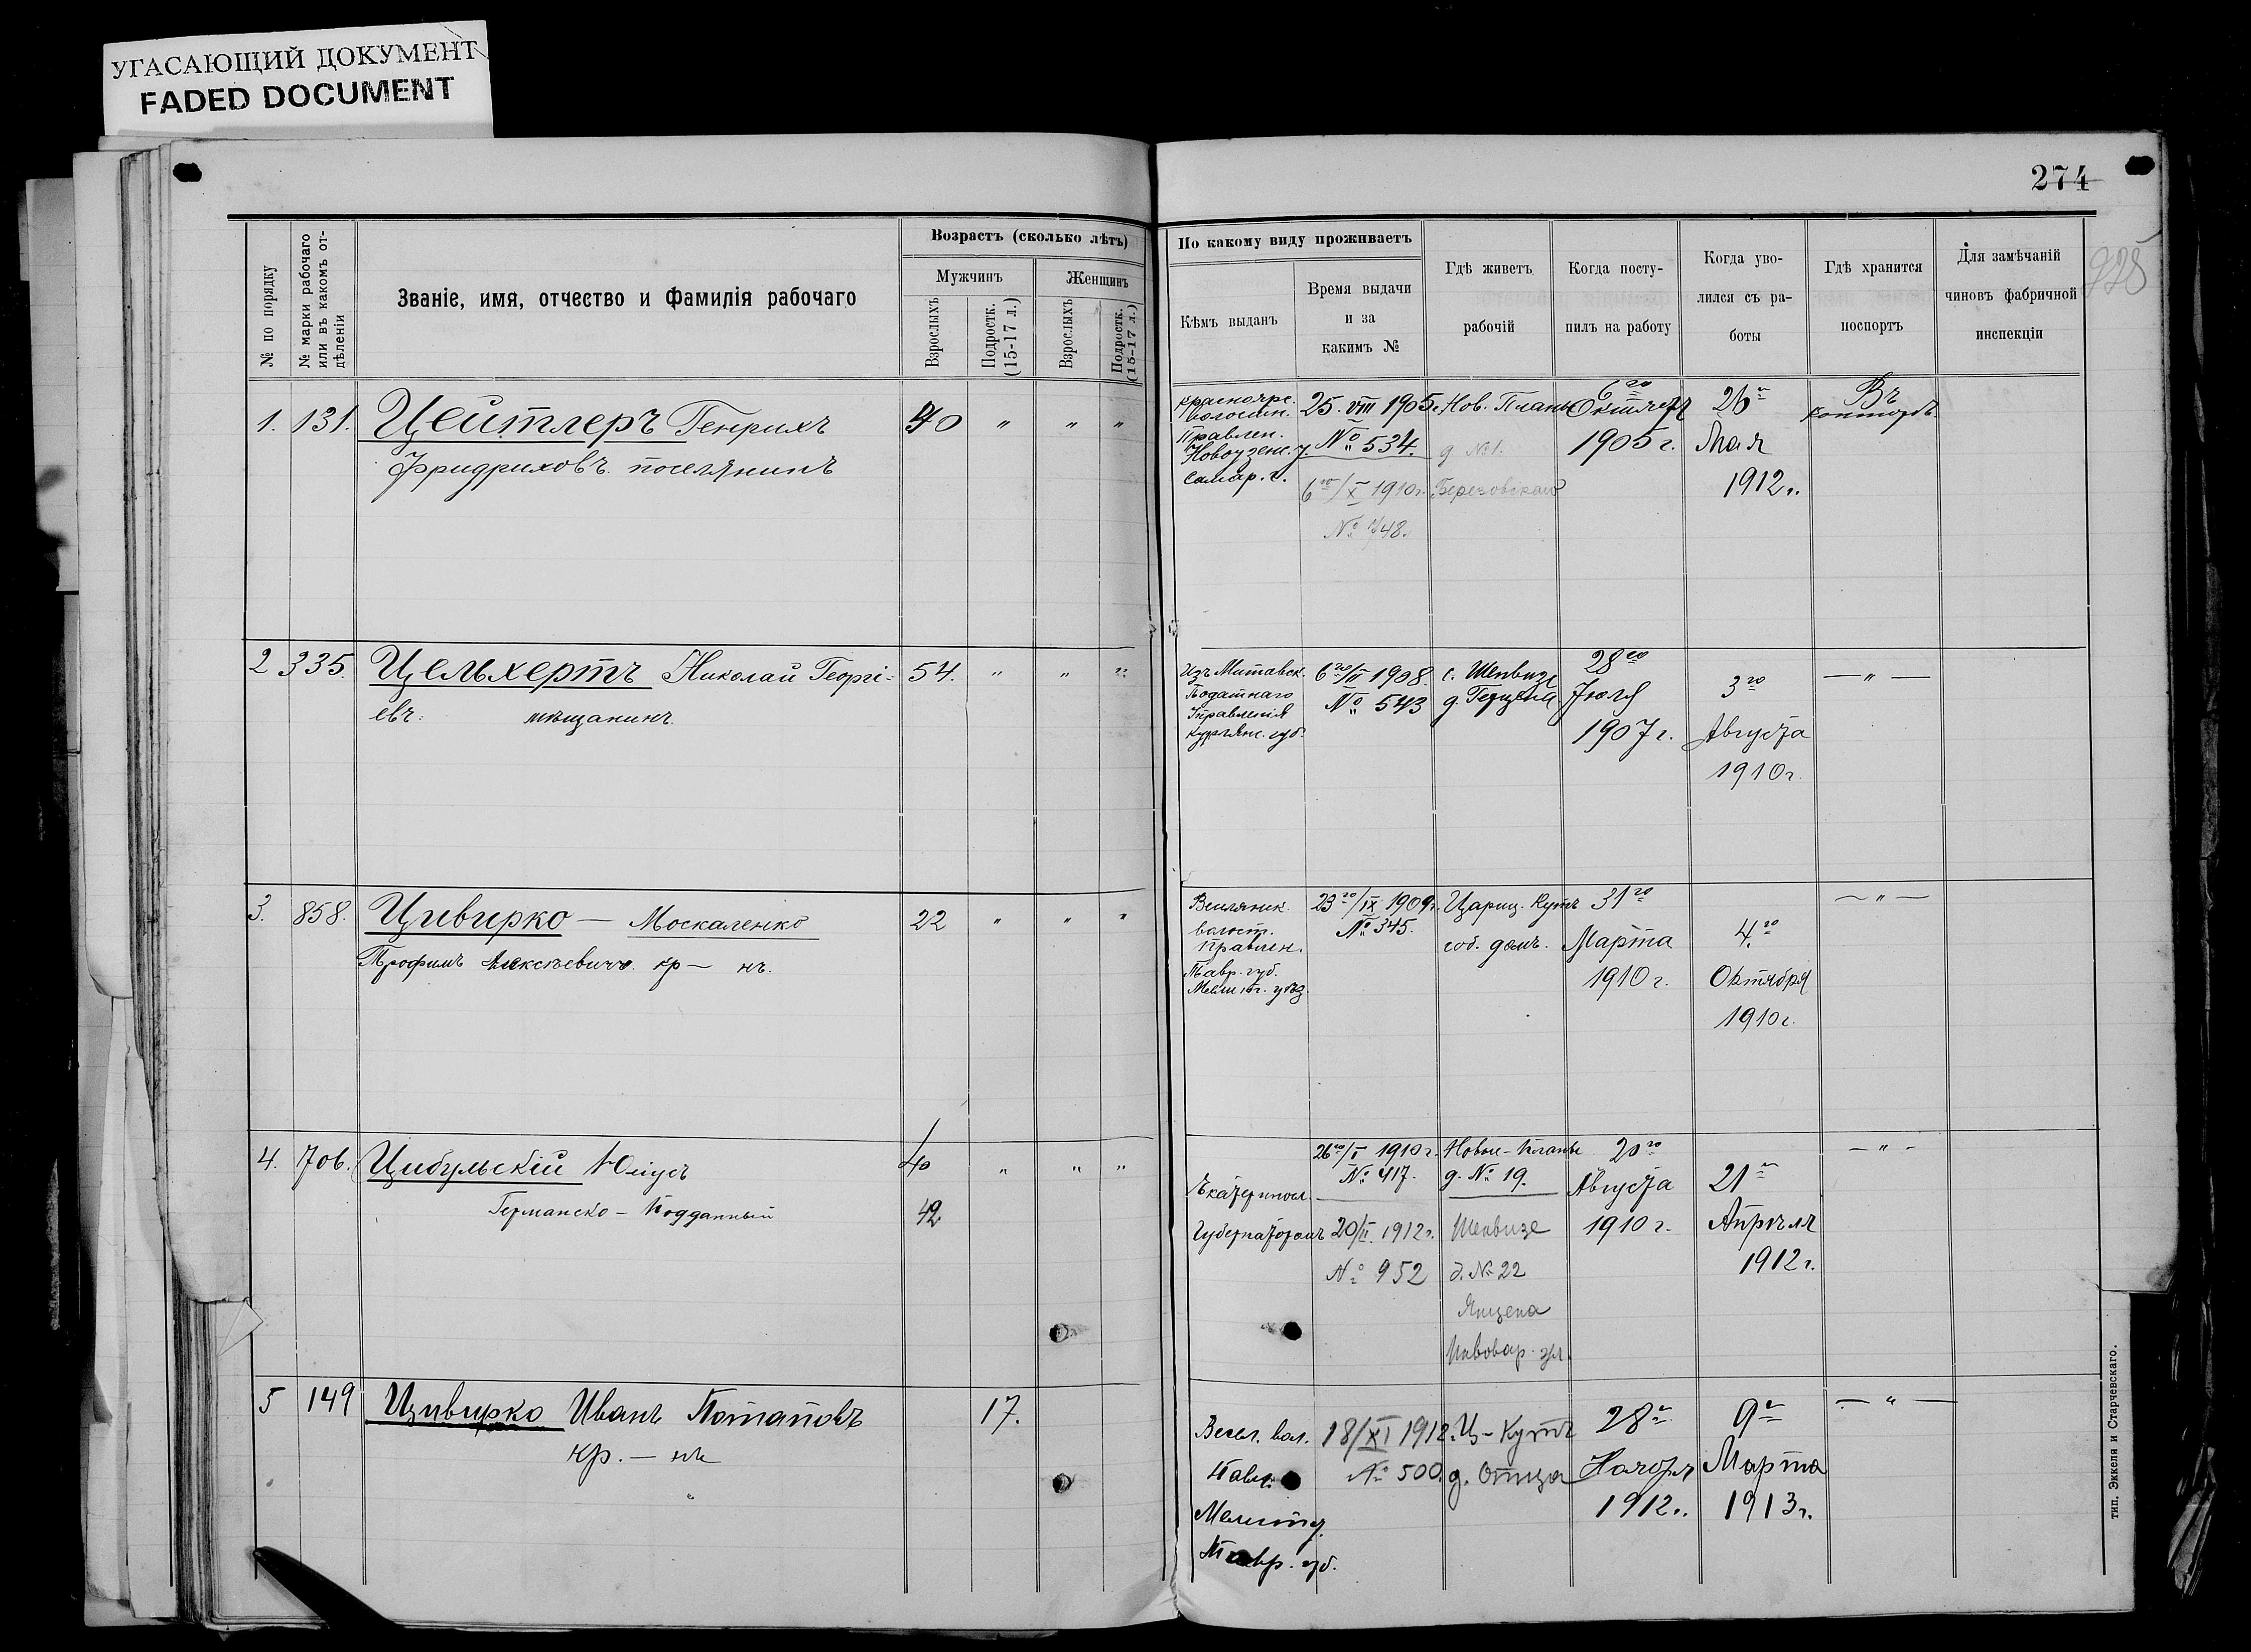 УГАСАЮЩИЙ ДОКУМЕНТ
FADED DOCUMENT
274
928
№ по порядку
№ марки рабочаго
или въ какомъ от-
дѣленіи
Званіе, имя, отчество и фамилія рабочаго
Возрастъ (сколько лѣтъ)
Мужчинъ
Женщинъ
Взрослыхъ
Подростк.
(15-17 л.)
Взрослыхъ
Подростк.
(15-17 л.)
По какому виду проживаетъ
Кѣмъ выданъ
Время выдачи
и за
какимъ №
Гдѣ живетъ
рабочій
Когда посту-
пилъ на работу
Когда уво-
лился съ ра-
боты
Гдѣ хранится
поспортъ
Для замѣчаній
чиновъ фабричной
инспекціи
1. 131. Цейтлеръ Генрихъ
Фридриховъ поселянинъ
40 " " "
Красноярс.
волостн.
Правлен.
Новоузенс. у.
Самар. г.
25. VIII 1905.
№ 534.
6го/X 1910 г.
№ 748.
Нов. Планы
д №1.
Березовскаго
6го
Октября
1905 г.
26го
Мая
1912 г.
Въ
конторѣ
2 335. Цельхертъ Николай Георгі-
евъ мѣщанинъ.
54. " " "
Изъ Митавск.
Податнаго
Управленія
Курлянс. губ.
6го/II 1908.
№ 543
с. Шенвизе
28го
Іюля
1907 г.
3го
Августа
1910 г.
— " —
3. 858. Цивирко — Москаленко
Трофимъ Алексѣевичъ кр — нъ.
22 " " "
волост.
Правлен.
Тавр. губ.
Мелит. уѣз.
23го/IX 1909 г.
№ 345.
Цариц. Кутъ
соб. домъ.
31го
Марта
1910 г.
4го
Октября
1910 г.
— " —
4. 706. Цибульскій Юліусъ
Германско - Подданный
40 " " "
42
Екатериносл.
Губернаторомъ
26го/I 1910 г.
№ 417.
20/II 1912 г.
№ 952
Новые - Планы
д. № 19.
Шенвизе
д. № 22
Янцена
Пивовар. ул.
20го
Августа
1910 г.
21го
Апрѣля
1912 г.
— " —
5 149 Цивирко Иванъ Потаповъ
кр. — нъ
17.
Весел. вол.
Мелит у.
Тавр. губ.
18/XI 1912.
№ 500.
Ц - Кутъ
д. Отца
28го
Ноября
1912 г.
9го
Марта
1913 г.
— " —
тип. Эккеля и Старчевскаго.